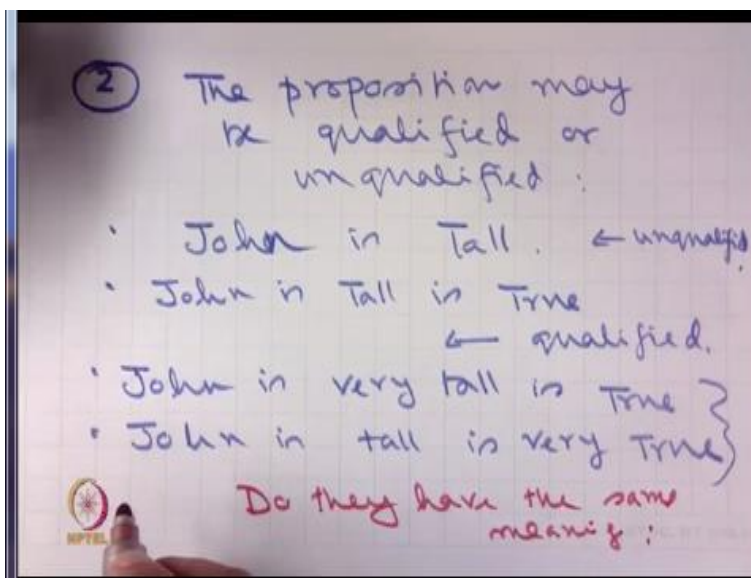 2 The proposition may
be qualified or
unqualified :
• John is Tall. ← unqualified.
• John is Tall is True
← qualified.
• John is very tall is True
• John is tall is very True
Do they have the same
meaning :
NPTEL